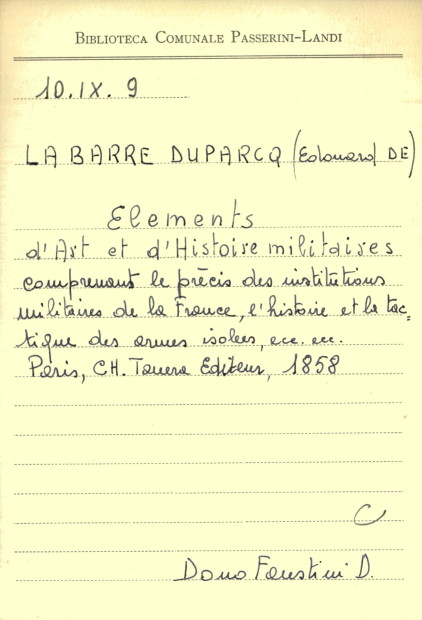 BIBLIOTECA COMUNALE PASSERINI-LANDI
10.IX. 9
LA BARRE DUPARCQ (Edouard DE)
Elements
d'Art et d'Histoire militaires
comprenant le précis des institutions
militaires de la France, l'histoire et la tac=
tique des armes isolees, ecc. ecc.
Paris, CH. Tanera Editeur, 1858
C
Dono Faustini D.